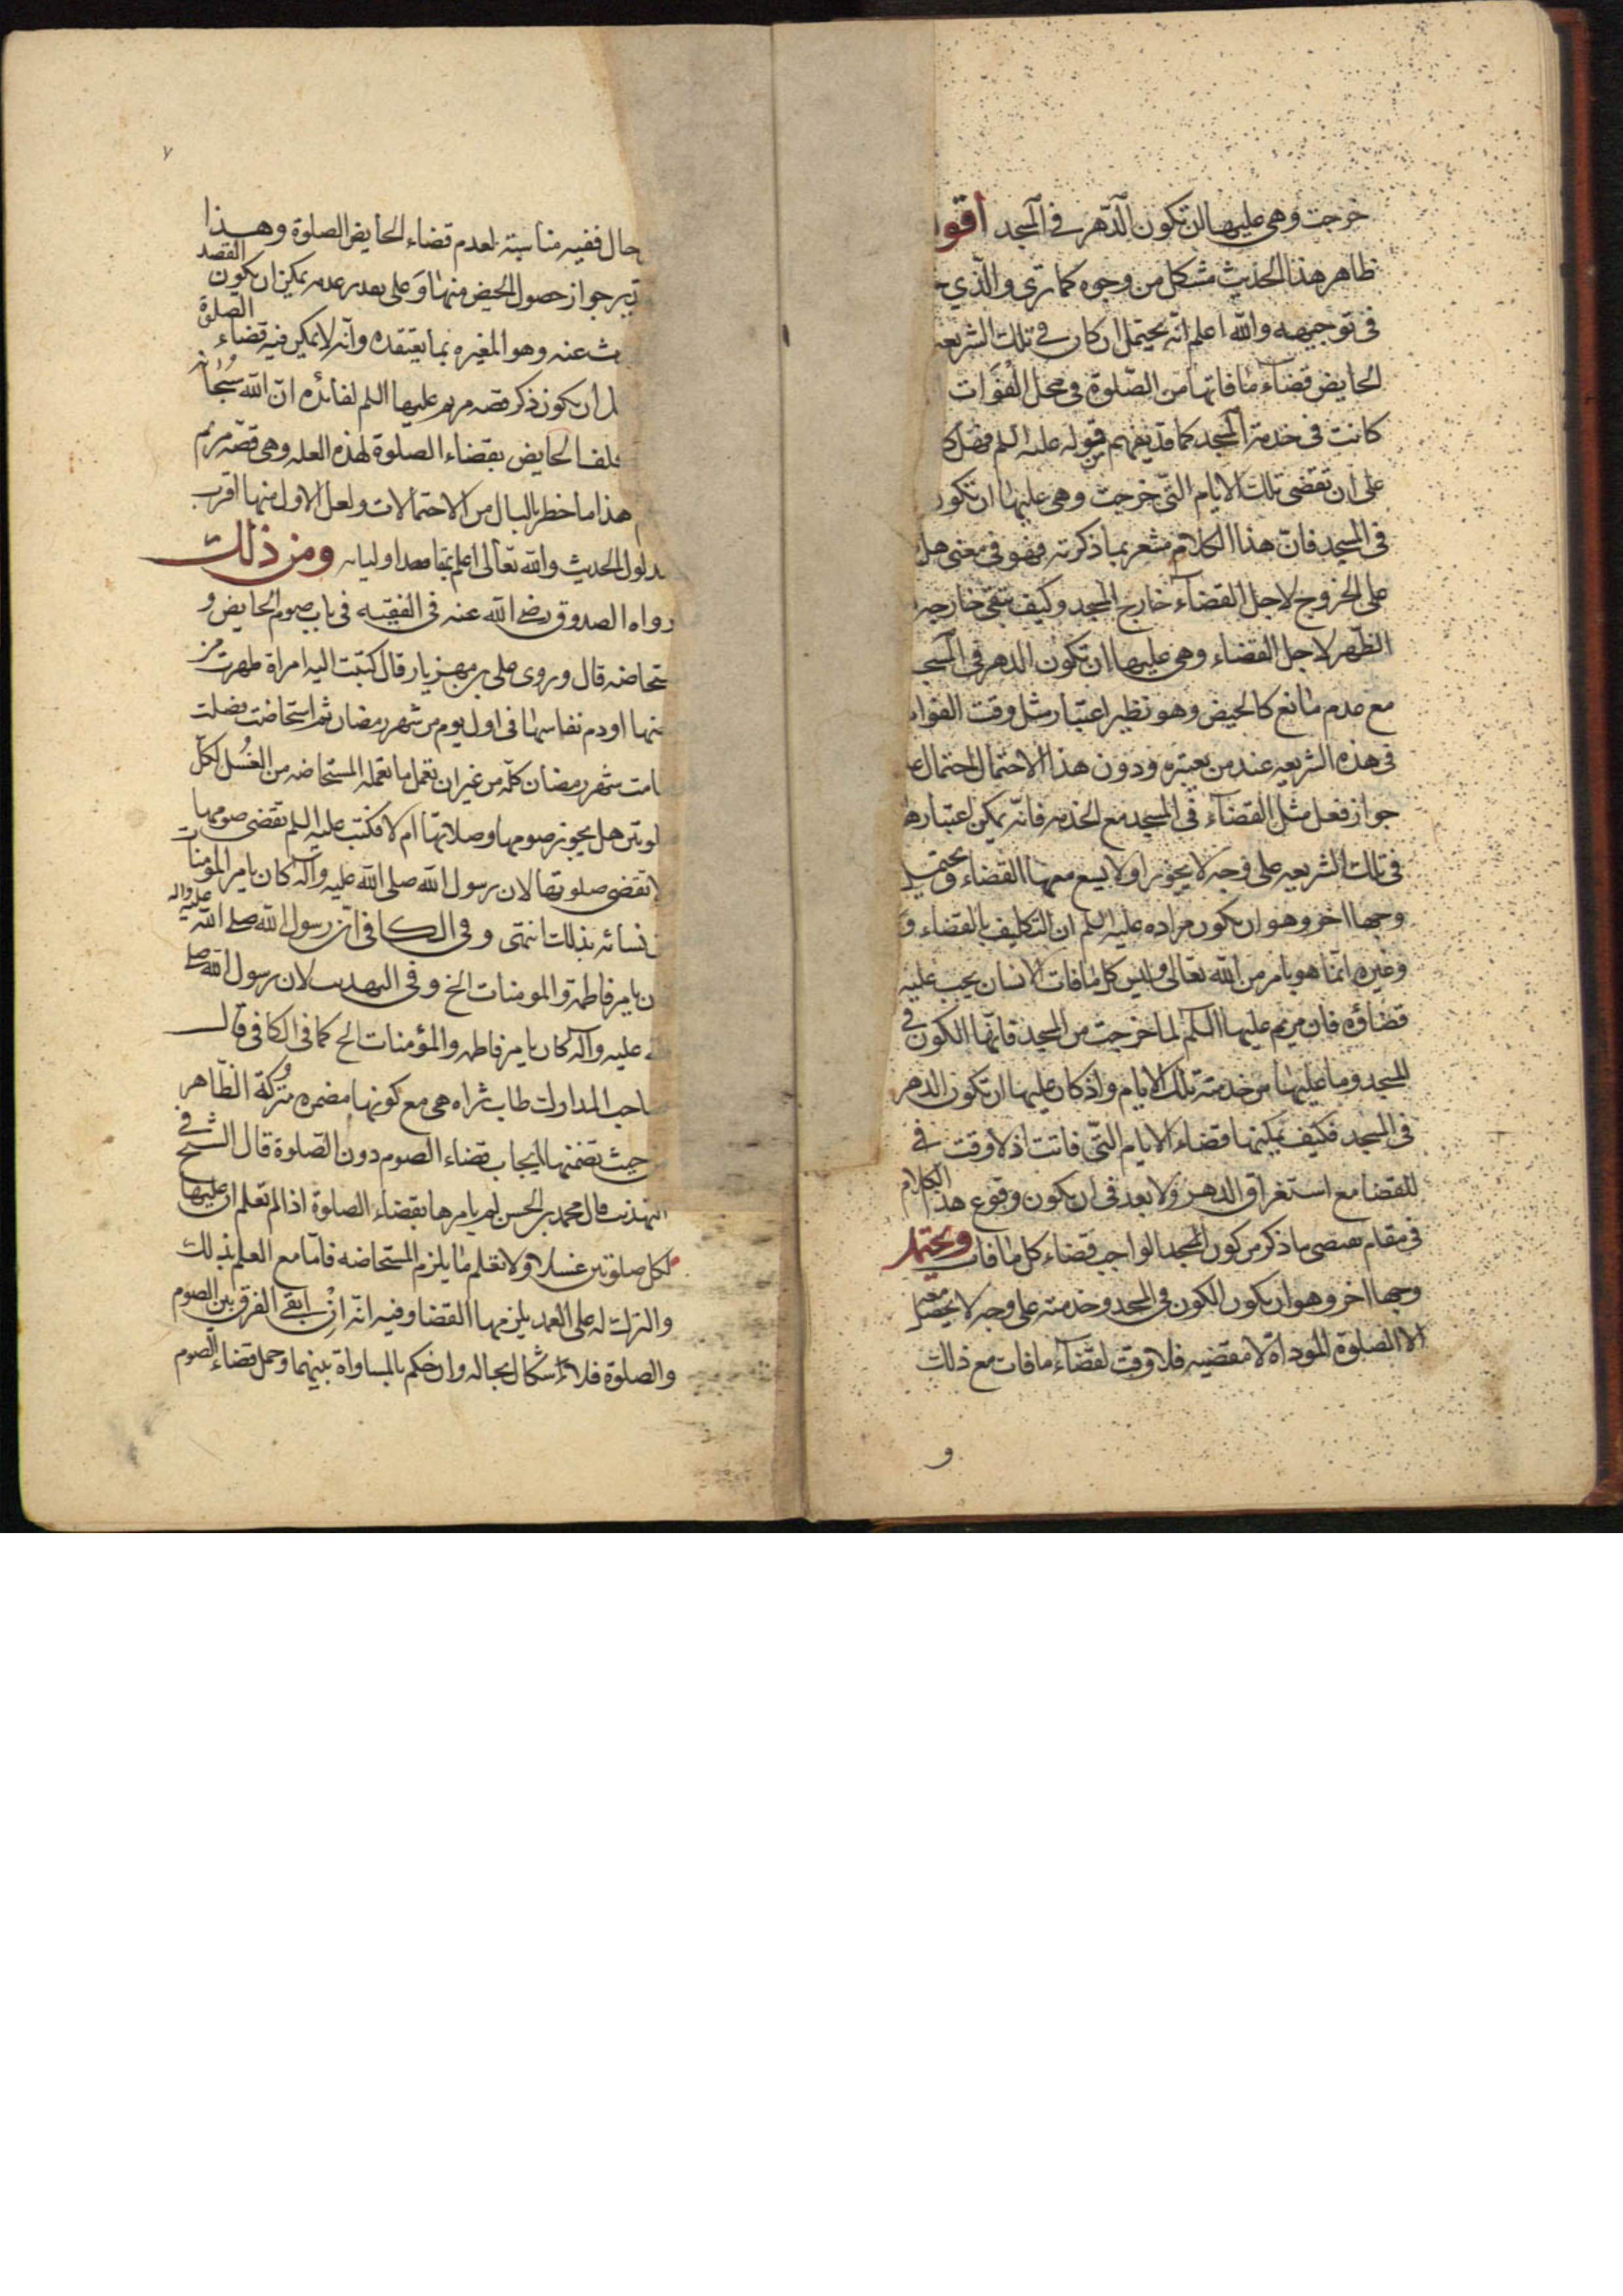 خرجت وهي عليها ان تكون الدهر في المسجد اقو
ظاهر هذا الحديث مشكل من وجوه كما ترى والذي
في توجيهه والله اعلم انه يحتمل ان كان في تلك الشريعه
الحايض قضاء ما فاتها من الصلوة في محل الفوات
كانت في خدمة المسجد كما قد يفهم من قوله عليه السلم فهل
على ان تقضي تلك الايام التي خرجت وهي عليها ان تكون
في المسجد فان هذا الكلام مشعر بما ذكرته فهو في معنى هل
على الخروج لاجل القضاء خارج المسجد وكيف تبقى خارجه
الظهر لاجل القضاء وهي عليها ان تكون الدهر في المسجد
مع عدم مانع كالحيض وهو نظير اعتبار مثل وقت الفوات
في هذه الشريعه عند من يعتبره ودون هذا الاحتمال احتمال
جواز فعل مثل القضاء في المسجد مع الخدمه فانه يمكن اعتبارها
في تلك الشريعه على وجه لا يجوز او لا يسع معها القضاء ويحتمل
وجها اخر وهو ان يكون مراده عليه السلم ان التكليف بالقضاء و
وغيره انما هو بامر من الله تعالى وليس كل ما فات الانسان يجب عليه
قضاؤه فان مريم عليها السلم لما خرجت من المسجد فاتها الكون في
المسجد وما عليها من خدمته تلك الايام واذ كان عليها ان تكون الدهر
في المسجد فكيف يمكنها قضاء الايام التي فاتت اذ لا وقت في
للقضا مع استغراق الدهر ولا بعد في ان يكون وقوع هذا الكلام
في مقام يقتضي ما ذكر من كون المسجد الواجب قضاء كل ما فات ويحتمل
وجها اخر وهو ان يكون الكون في المسجد وخدمته على وجه لا يحصل معه
الا الصلوة المؤداة لا مقضيه فلا وقت لقضاء ما فات مع ذلك
و
٧
حال ففيه مناسبة لعدم قضاء الحايض الصلوة وهذا القصد
جواز حصول الحيض منها وعلى تقدير عدمه يمكن ان يكون
عنه وهو المغيره بما يعتقده وانه لا يمكن فيه قضاء الصلوة
ان يكون ذكر قصه مريم عليها السلم لفائده ان الله سبحانه
الحايض بقضاء الصلوة لهذه العله وهي قصة مريم
هذا ما خطر بالبال من الاحتمالات ولعل الاول منها اقرب
مدلول الحديث والله تعالى اعلم بمقاصد اوليائه ومن ذلك
رواه الصدوق رضي الله عنه في الفقيه في باب صوم الحايض و
تحاضه قال وروى علي بن مهزيار قال كتبت اليه امراة طهرت من
او دم نفاسها في اول يوم من شهر رمضان ثم استحاضت فصلت
امت شهر رمضان كله من غير ان تعمل ما تعمله المستحاضه من الغسل لكل
لوتين هل يجوز صومها وصلاتها ام لا فكتب عليه السلم تقضي صومها
لا تقضي صلوتها لان رسول الله صلى الله عليه وآله كان يامر المؤمنات
نسائه بذلك انتهى وفي الكافي ان رسول الله صلى الله عليه واله
ن يامر فاطمة والمومنات الخ وفي التهذيب لان رسول الله صلى
عليه وآله كان يامر فاطمه والمؤمنات الخ كما في الكافي قال
صاحب المدارك طاب ثراه هي مع كونها مضمره متروكة الظاهر
حيث تضمنها ايجاب قضاء الصوم دون الصلوة قال الشيخ في
التهذيب قال محمد بن الحسن لم يامرها بقضاء الصلوة اذا لم تعلم ان عليها
لكل صلوتين غسلا ولا تعلم ما يلزم المستحاضه فاما مع العلم بذلك
والترك له على العمد يلزمها القضا وفيه انه ان ابقى الفرق بين الصوم
والصلوة فالاشكال بحاله وان حكم بالمساواة بينهما وحمل قضاء الصوم